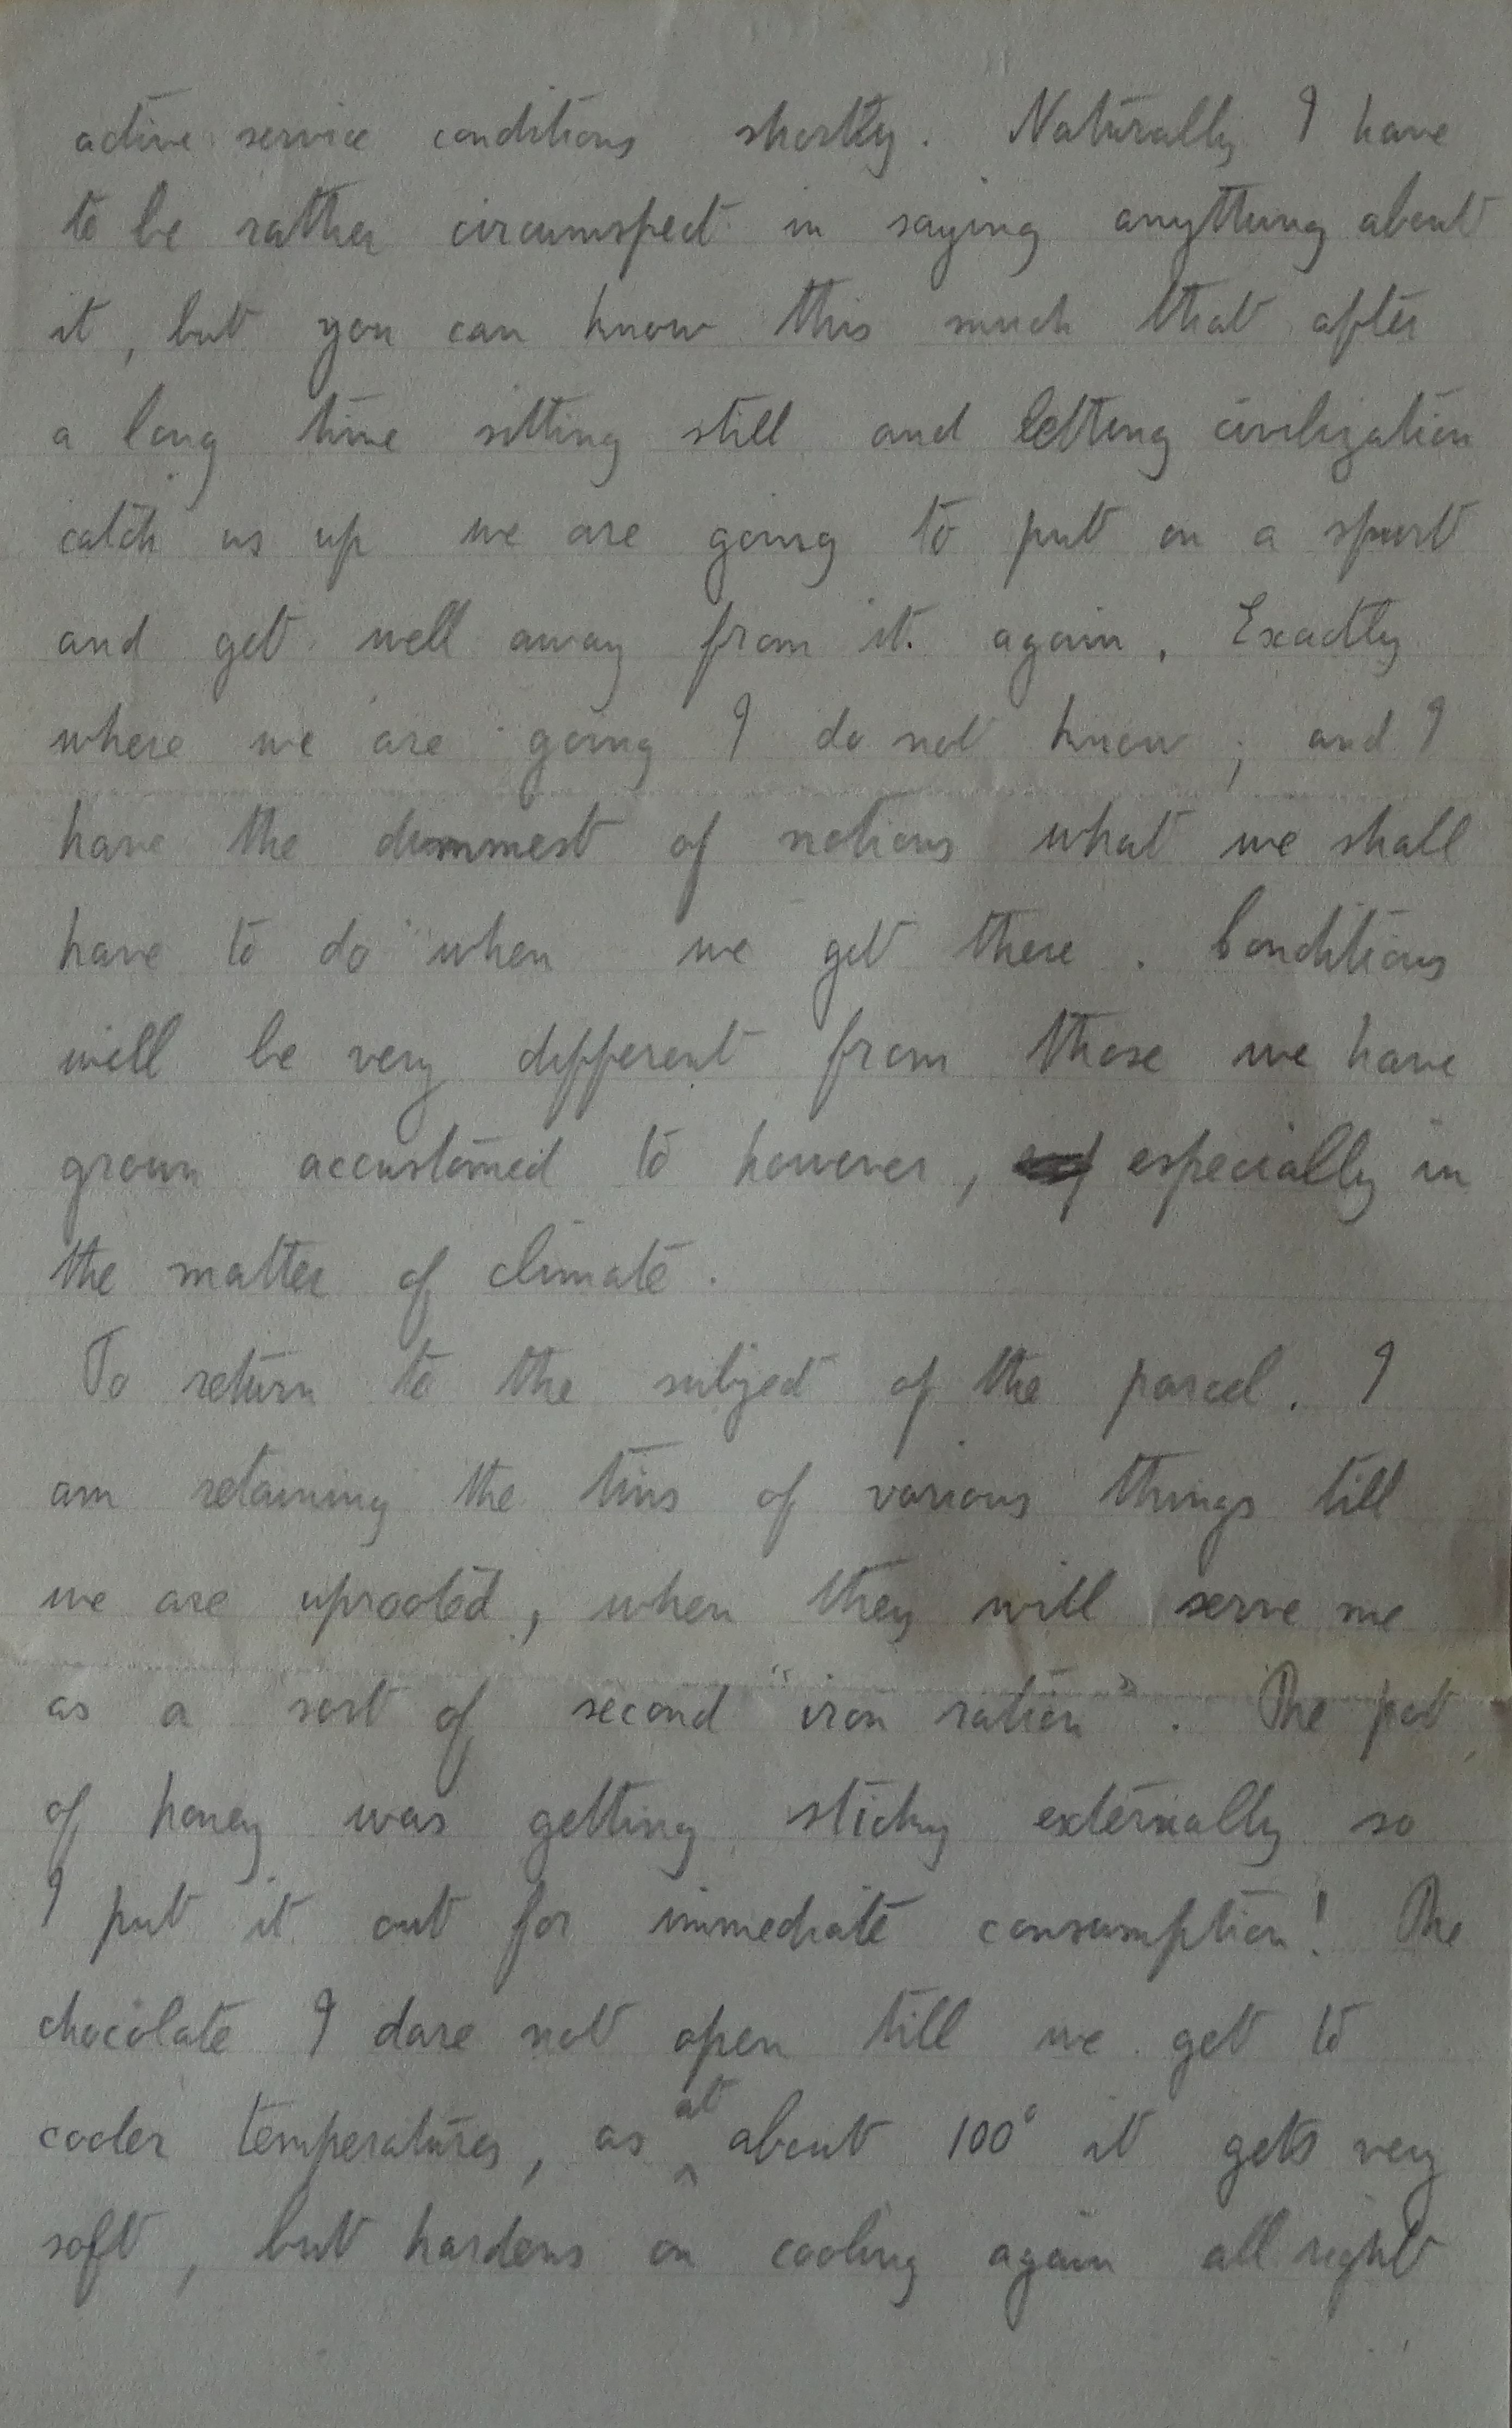 active service conditions shortly. Naturally I have
to be rather circumspect in saying anything about
it, but you can know this much that after
a long time sitting still and letting civilization
catch us up we are going to put on a spurt
and get well away from it again. Exactly
where we are going I do not know; and I
have the dimmest of notions what we shall
have to do when we get there. Conditions
will be very different from those we have
grown accustomed to however, especially in
the matter of climate.
To return to the subject of the parcel. I
am retaining the tins of various things till
we are uprooted, when they will serve me
as a sort of second "iron ration". The pot
of honey was getting sticky externally so
I put it out for immediate consumption! The
chocolate I dare not open till we get to
cooler temperatures, as at about 100° it gets very
soft, but hardens on cooling again all right